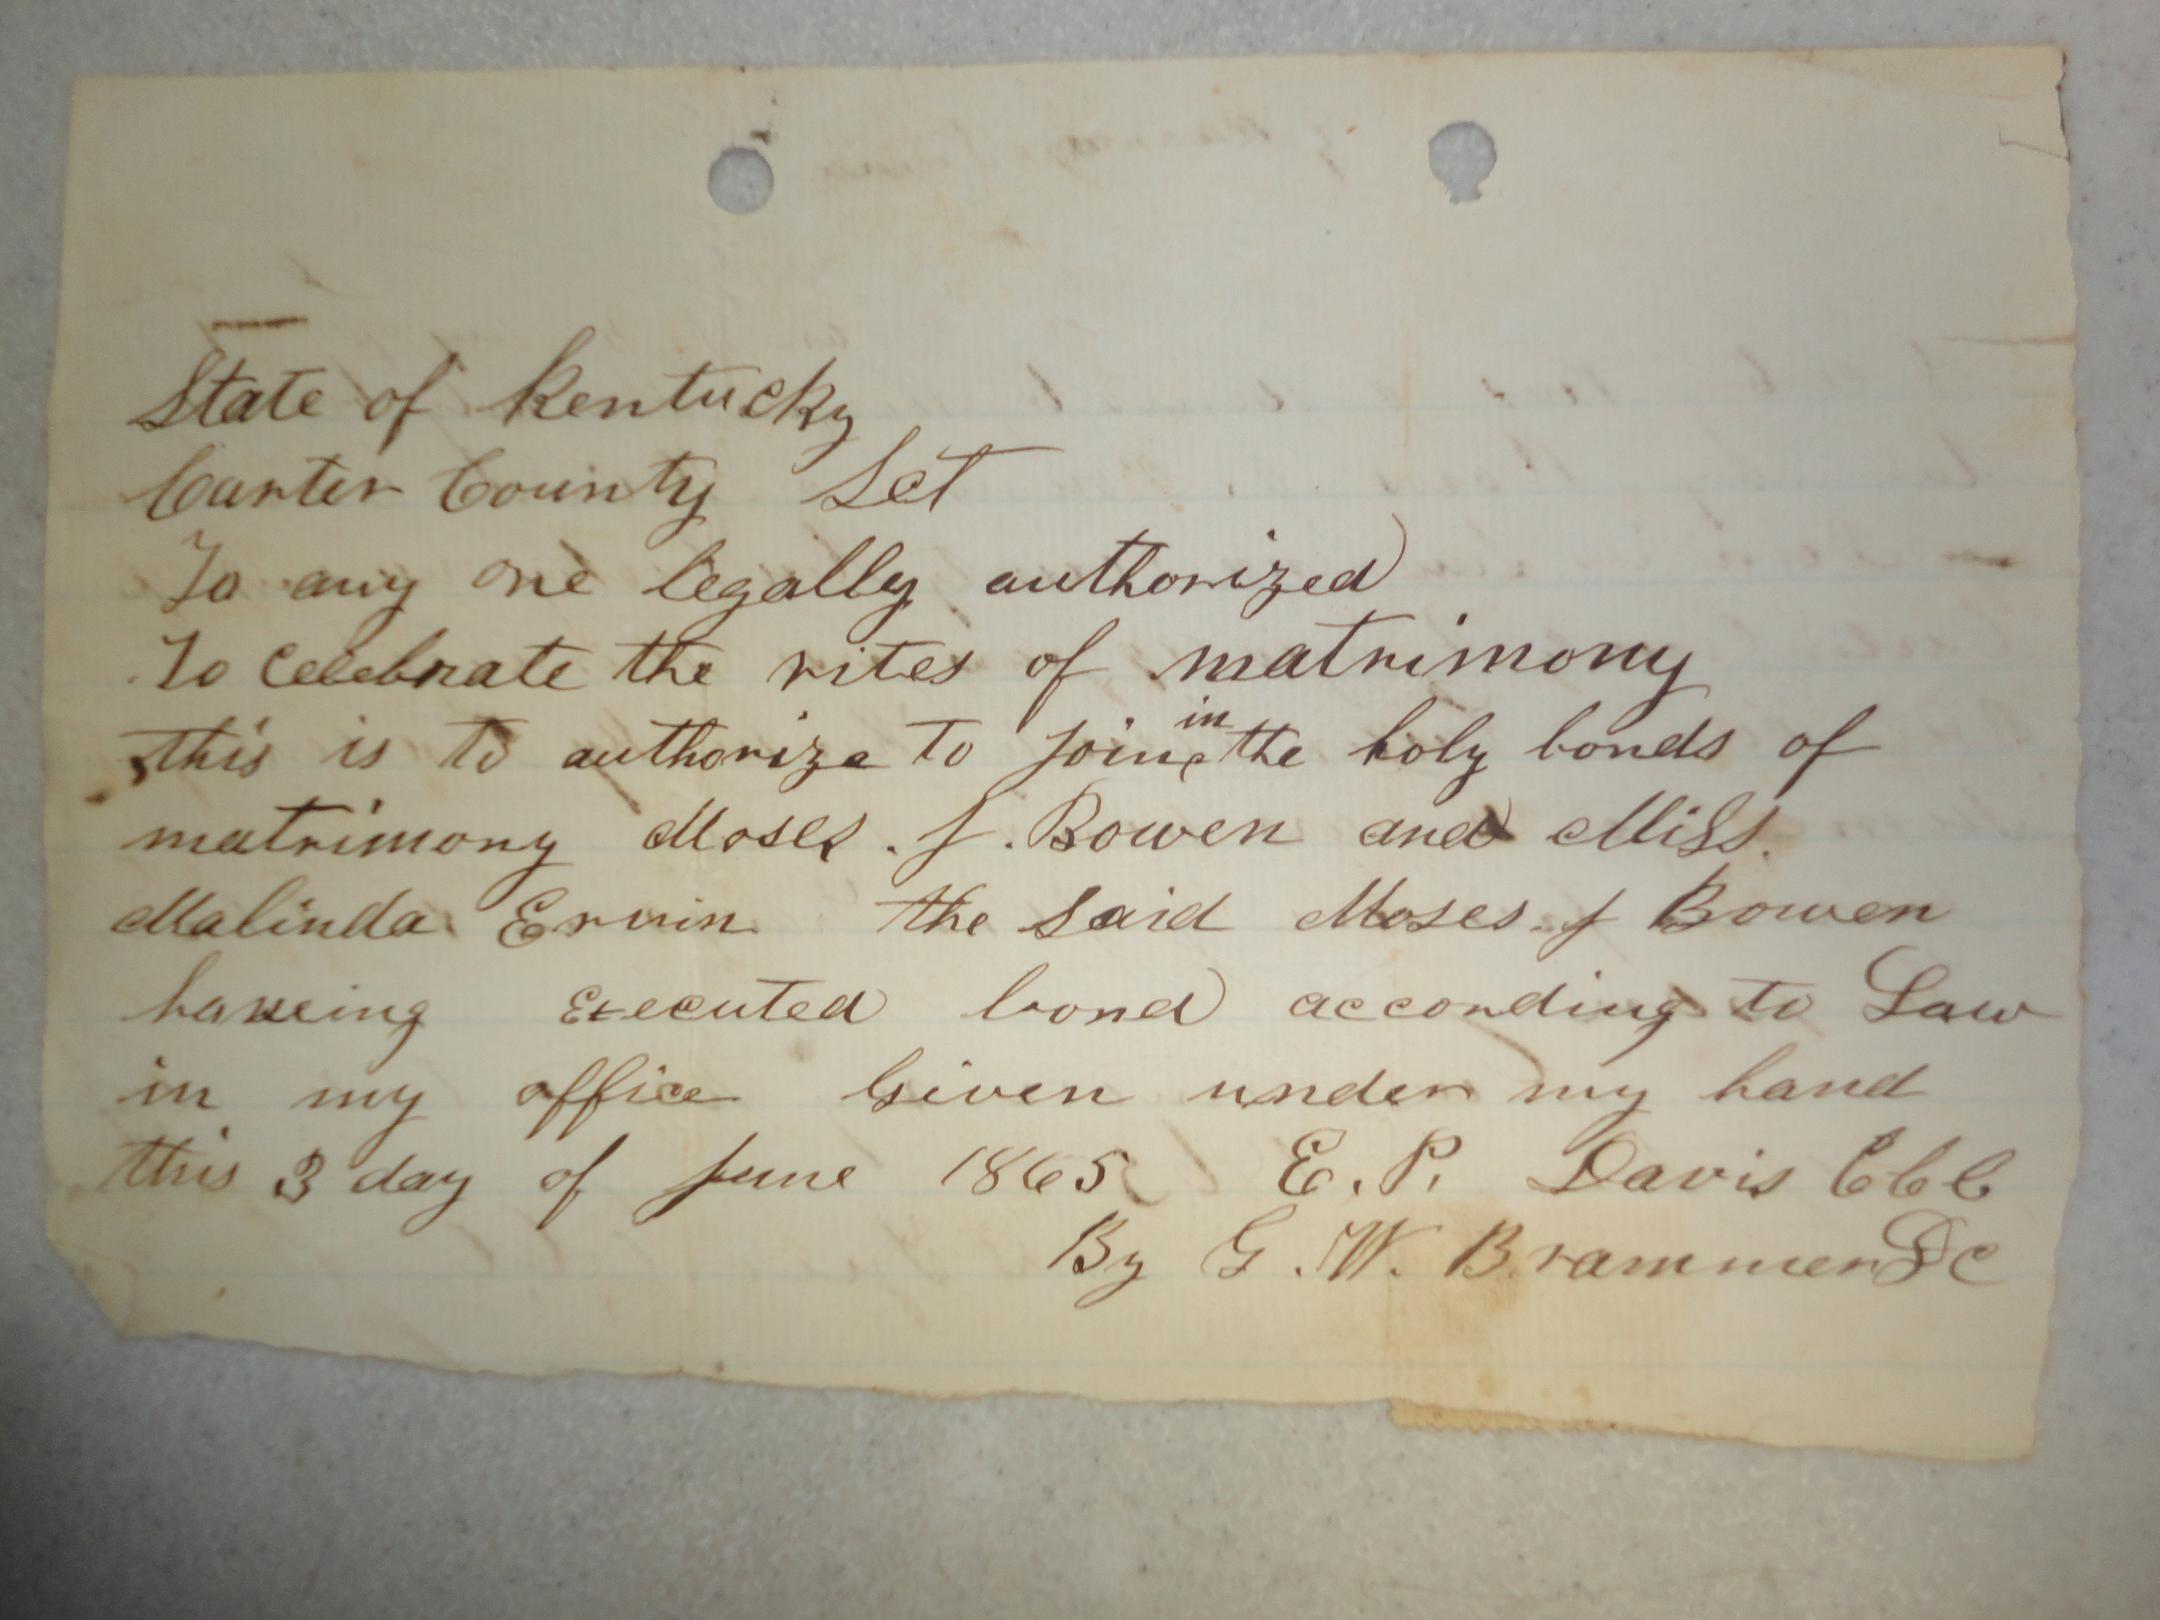 State of Kentucky
Carter County Sct
To any one legally authorized
To Celebrate the rites of matrimony
this is to authorize to join in the holy bonds of
matrimony Moses. J. Bowen and Miss.
Malinda Ervin the said Moses. J Bowen
haveing Executed bond according to Law
in my office Given under my hand
this 3 day of June 1865 E. P. Davis CCC
By G. W. Brammer DC